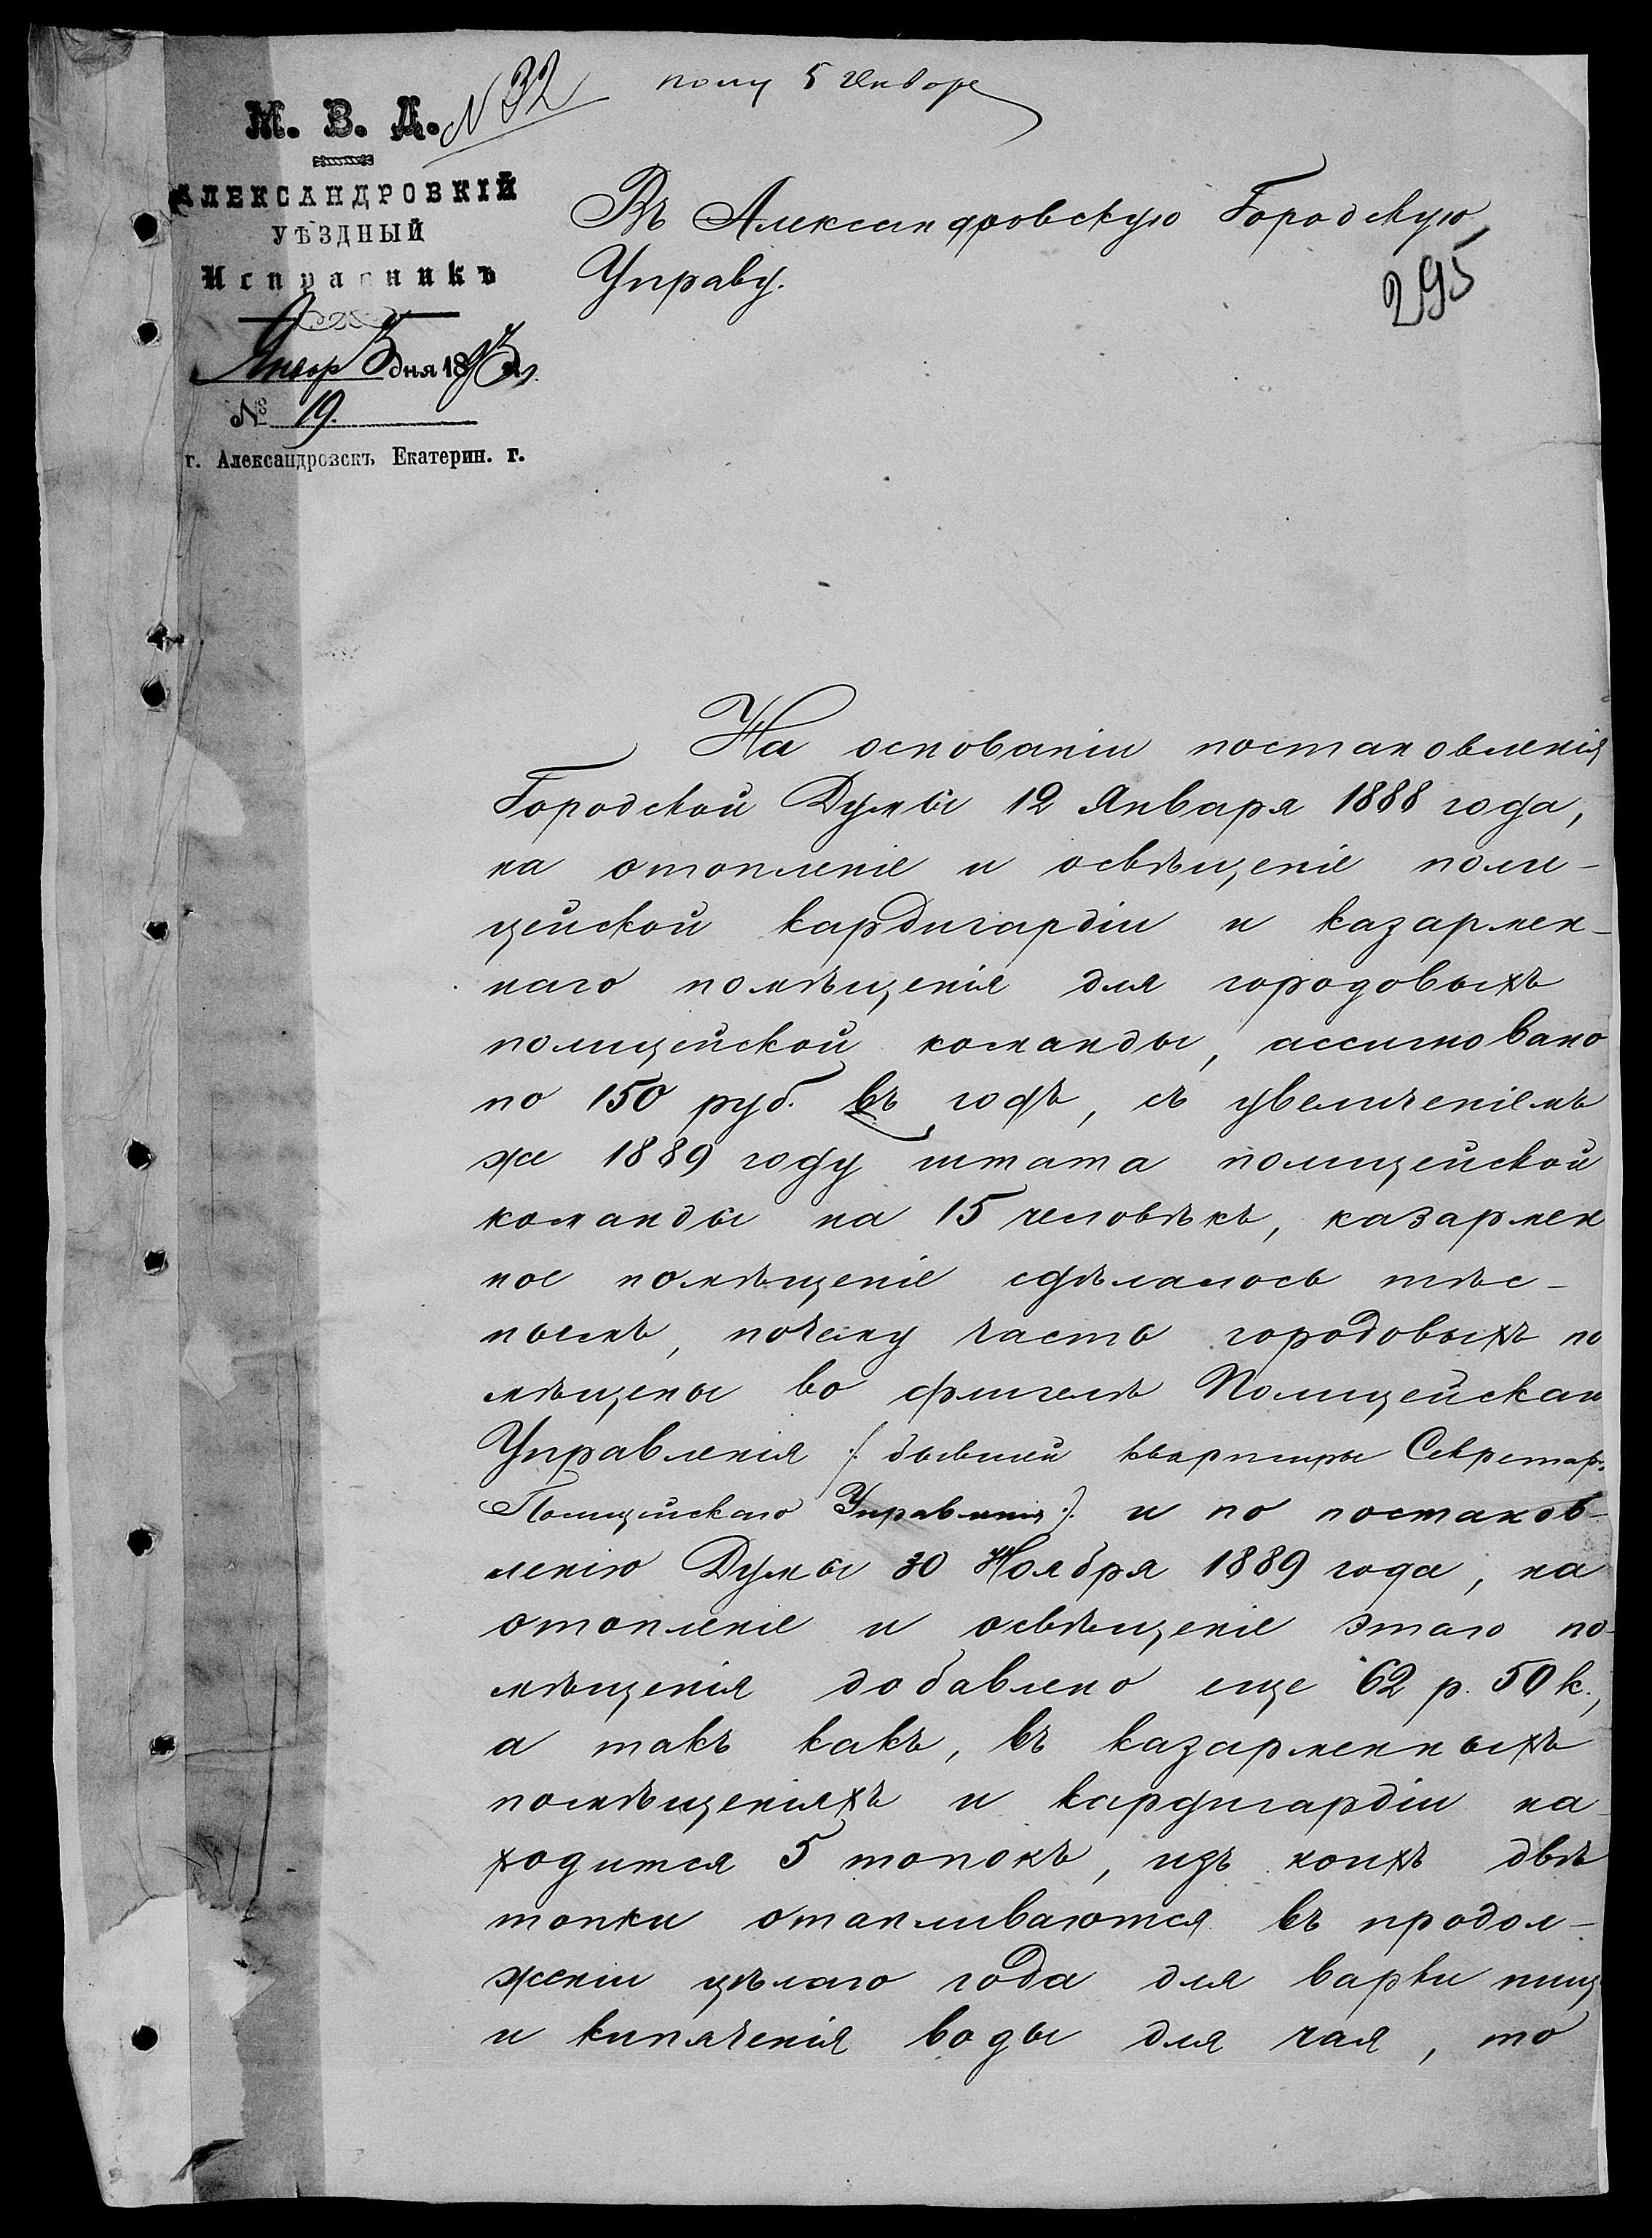 М. В. Д. N 32
полу 5 Января
АЛЕКСАНДРОВКІЙ
УѢЗДНЫЙ
Исправникъ
Январ 5 дня 1893 г.
№ 19.
г. Александровскъ Екатерин. г.
Въ Александровскую Городскую
Управу.
295
На основаніи постановленія
Городской Думы 12 Января 1888 года,
на отопленіе и освѣщеніе поли-
цейской кардигардіи и казармен-
наго помѣщенія для городовыхъ
полицейской команды, ассигновано
по 150 руб. въ годъ, съ увеличеніемъ
же 1889 году штата полицейской
команды на 15 человѣкъ, казармен
ное помѣщеніе сдѣлалось тѣс-
нымъ, почему часть городовыхъ по
мѣщены во флигелѣ Полицейскаго
Управленія (: бывшей квартиры Секретаря
Полицейскаго Управленія :) и по постанов-
ленію Думы 30 Ноября 1889 года, на
отопленіе и освѣщеніе этаго по-
мѣщенія добавлено еще 62 р. 50 к.,
а такъ какъ, въ казарменныхъ
помѣщеніяхъ и кардигардіи на-
ходится 5 топокъ, изъ коихъ двѣ
топки отапливаются въ продол-
женіи цѣлаго года для варки пищ
и кипяченія воды для чая, то